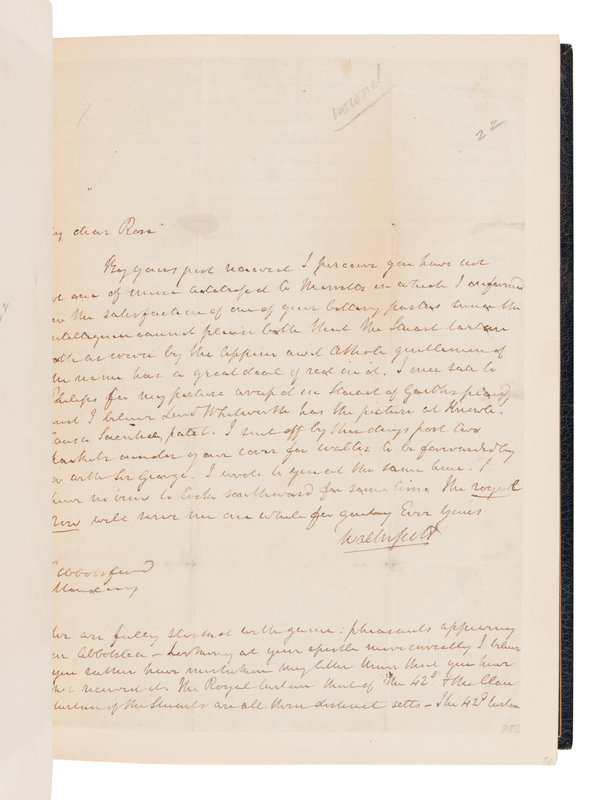 22
dear Rose
By yours just received I perceive you have not
one of mine addressd to Mamsley in which I informd
the satisfaction of one of your bottony parties since the
cannot please both that the Stuart tartan
as worn by the Appin and Athole gentlemen of
name has a great deal of red in it. I once sate to
Philips for my picture wrapd in Stuart of Garths plaid
and I believe Lord Whitworth has the picture at Knowle.
Causa Scientiae patet. I sent off by this days post two
under your cover for Walter to be forwarded by
with Sir George. I wrote to you at the same time. I
have no view to look southward for some time The royal
will serve me one while for gaiety Ever yours
Walter Scott
Abbotsford
Monday
We are fully stocked with game: pheasants appearing
Abbotslea – Looking at your epistle more correctly I believe
you rather have mistaken my letter than that you have
not received it. The Royal tartan that of the 42d & the Clan
tartan of the Stuarts are all three distinct setts – The 42d tartan